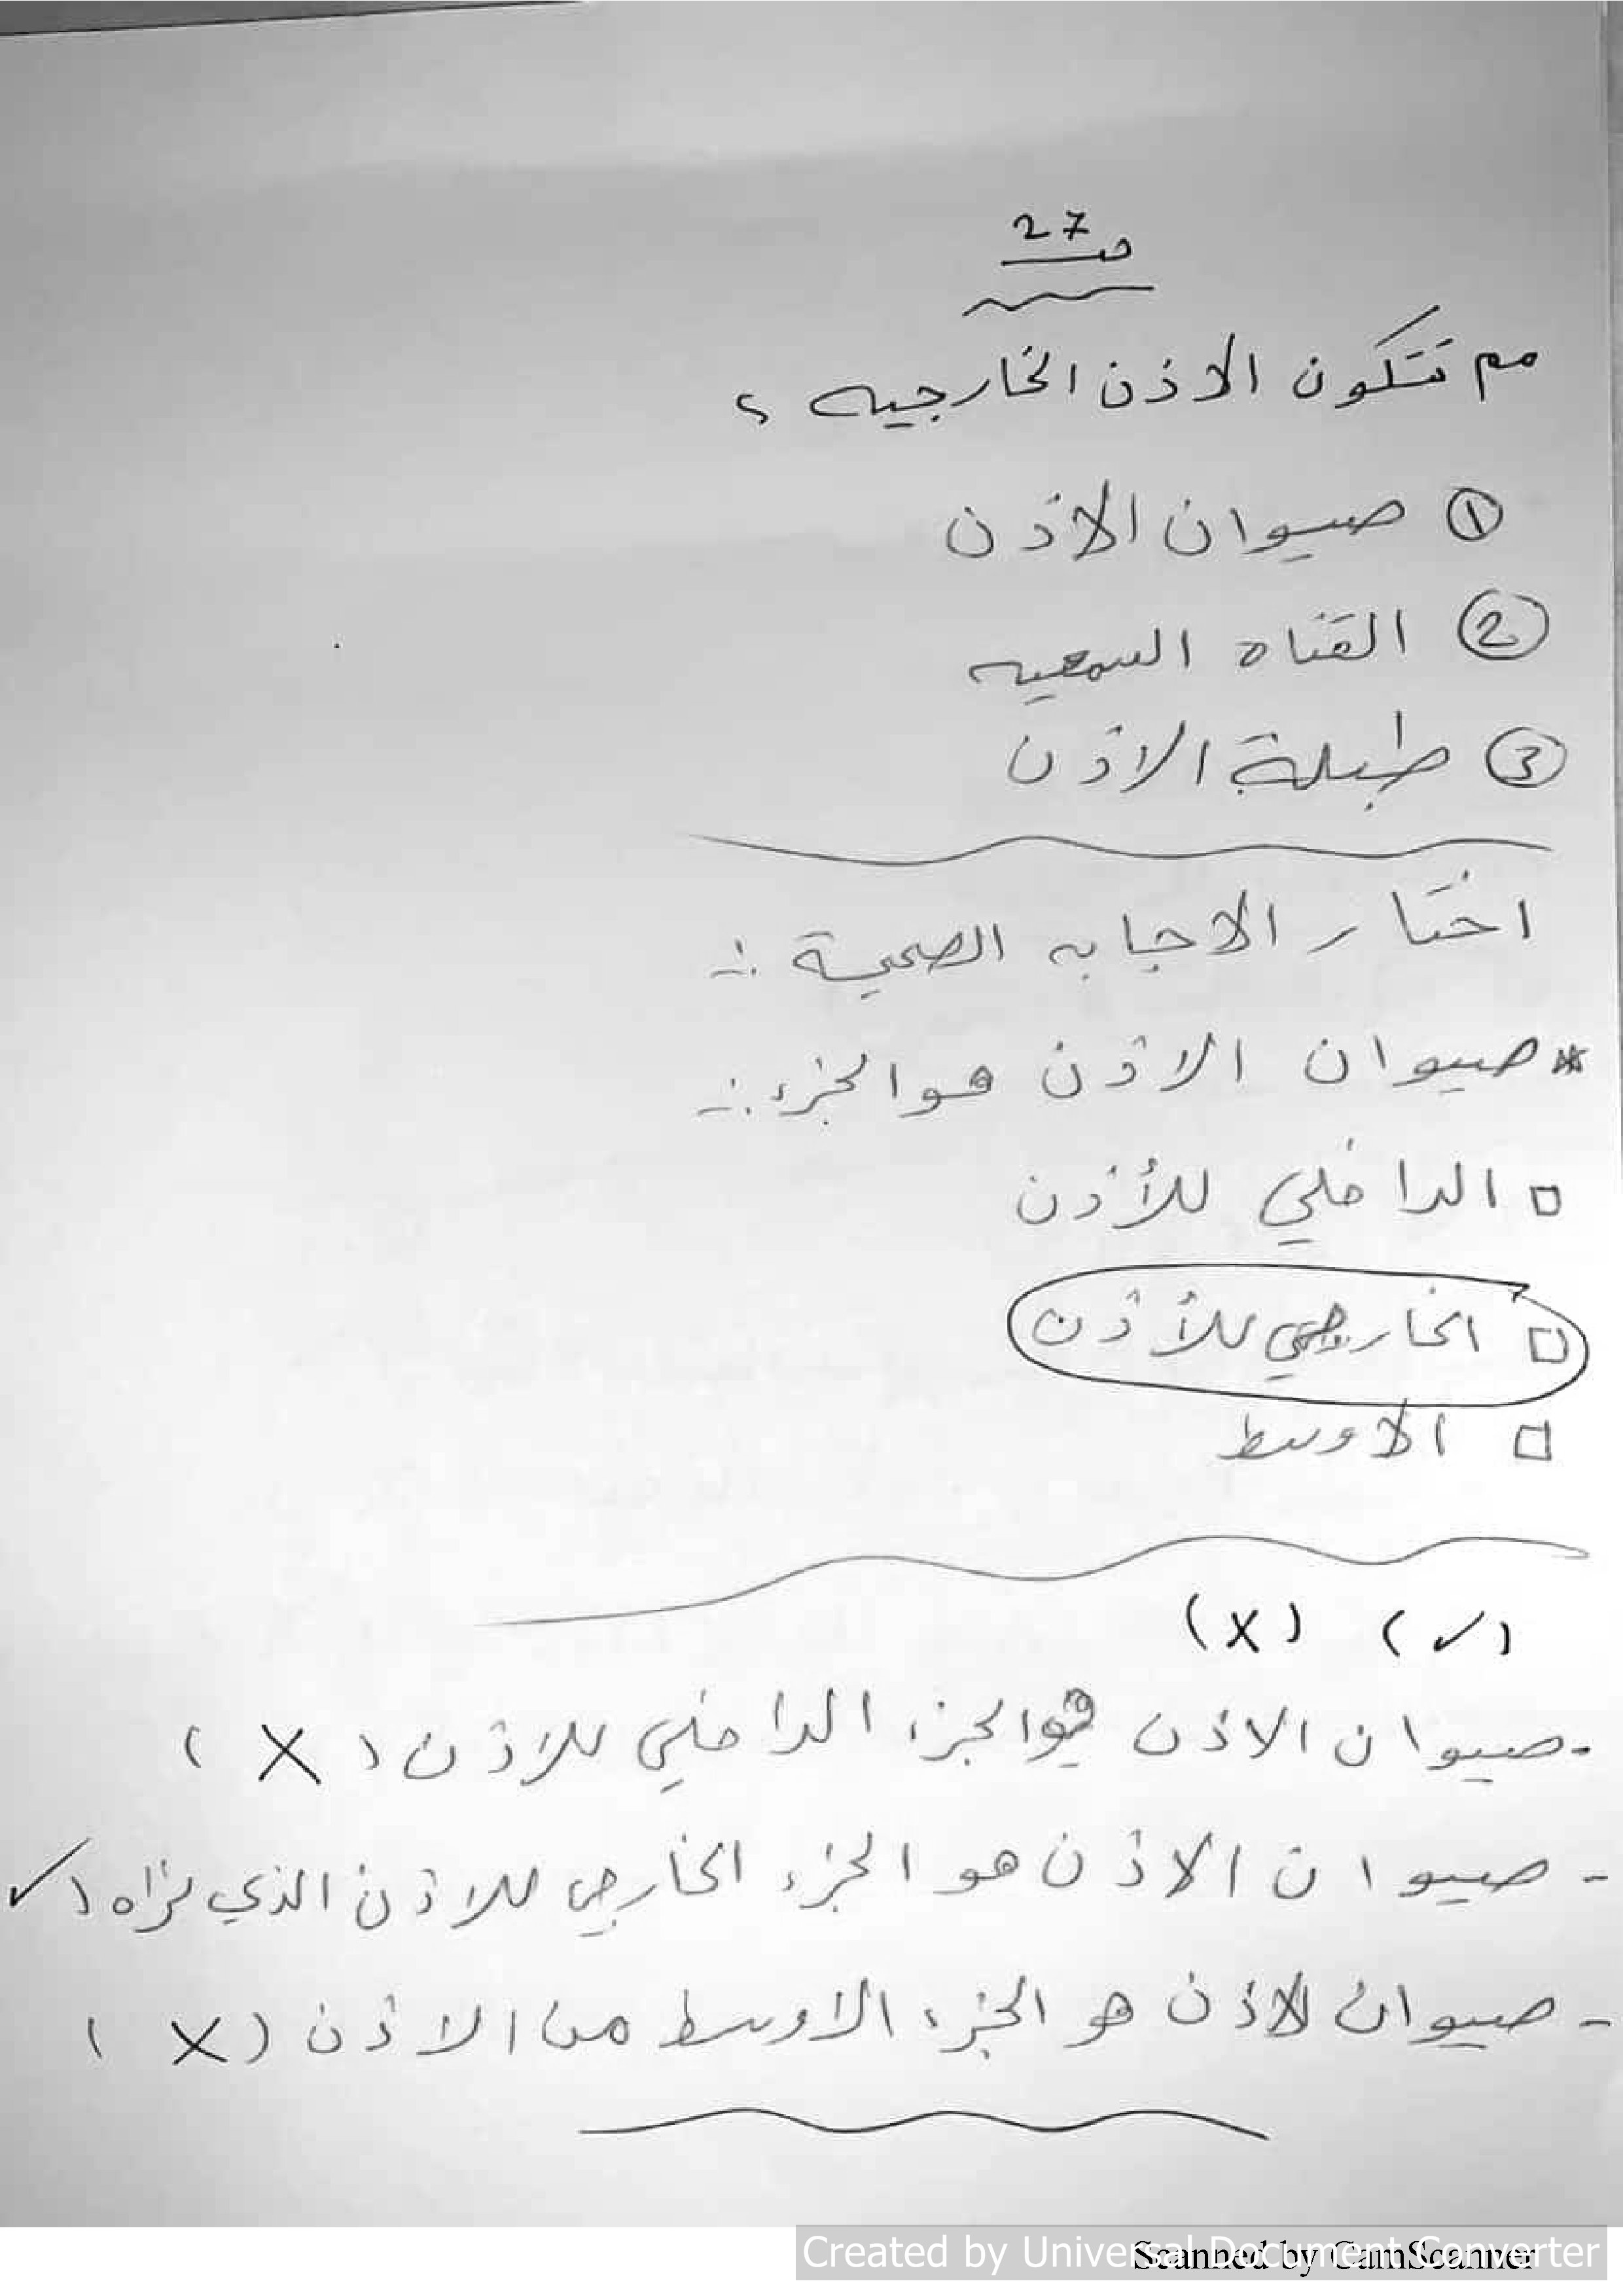 ص 27
مم تتكون الاذن الخارجيه ؟
① صيوان الاذن
② القناه السمعيه
③ طبلة الاذن
اختار الاجابه الصحية :-
* صيوان الاذن هو الجزء :-
□ الداخلي للأذن
□ الخارجي للأذن
□ الاوسط
(✓) (X)
- صيوان الاذن هو الجزء الداخلي للاذن ( X )
- صيوان الاذن هو الجزء الخارجي للاذن الذي نراه ( ✓
- صيوان الاذن هو الجزء الاوسط من الاذن ( X )
Created by Universal Document Converter
Scanned by CamScanner